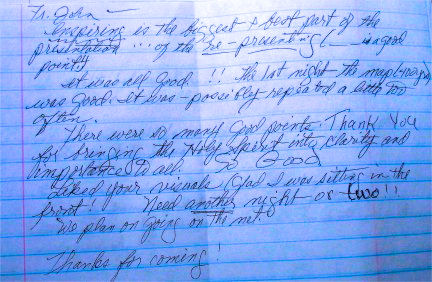 Fr. John —
Inspiring is the biggest & best part of the
presentation ... of the re-presenting ( is a good
point)
It was all good !! The 1st night the map
was good. It was possibly repeated a little too
often.
There were so many good points. Thank You
for bringing the Holy Spirit into clarity and
importance to all. So Good
Liked your visuals (Glad I was sitting in the
front! Need another night or two!!
We plan on going on the net.
Thanks for coming!